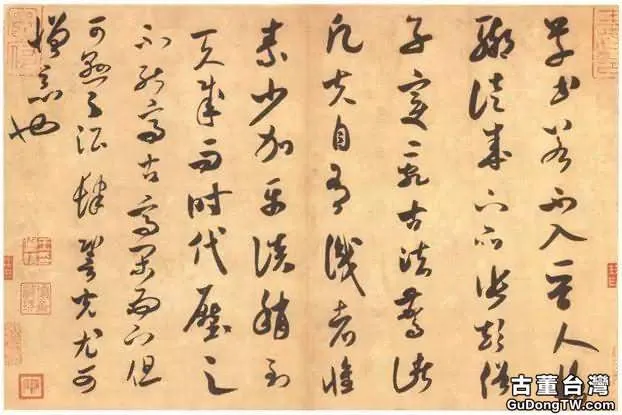 草書若不入晉人格
輒徒成下品張顛俗
子變亂古法驚諸
凡夫自有識者懷
素少加平淡稍到
天成而時代壓之
不能高古高閑而下但
可懸之酒肆䛒光尤可
憎惡也
古董台灣
GuDongTW.com